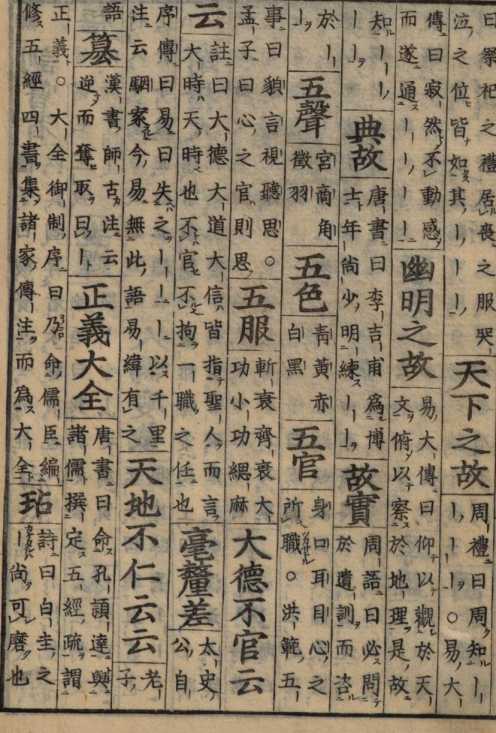 曰祭祀之禮居喪之服哭
泣之位皆如其ーーー
天下之故
周禮曰周知ー
ーーー○易大
傳曰寂然不動感
而遂通ーーーー
幽明之故
易大傳曰仰以觀於天
文俯以察於地理是故
知ーーー
ーーー
典故
唐書曰李吉甫爲博
士年尚少明練ーー
故實
周語曰必問
於遺訓而咨
於ーー
ー
五聲
宮商角
徵羽
五色
青黄赤
白黑
五官
身口耳目心之
所職○洪範五
事曰貌言視聽思○
孟子曰心之官則思
五服
斬衰齊衰大
功小功緦麻
大德不官云
云
註曰大德大道大信皆指聖人而言
大時天時也不官不拘一職之任也
毫釐差
太史
公自
序傳曰易曰失之ーーーー以千里
注云駟家今易無此語易緯有之
天地不仁云云
老
子
語
簒
漢書師古注云
逆而奪取曰ー
正義大全
唐書曰命孔頴達與
諸儒撰定五經疏謂
正義○大全御制序曰乃命儒臣編
修五經四書集諸家傳注而爲大全
玷
詩曰白圭之
ー尚可磨也